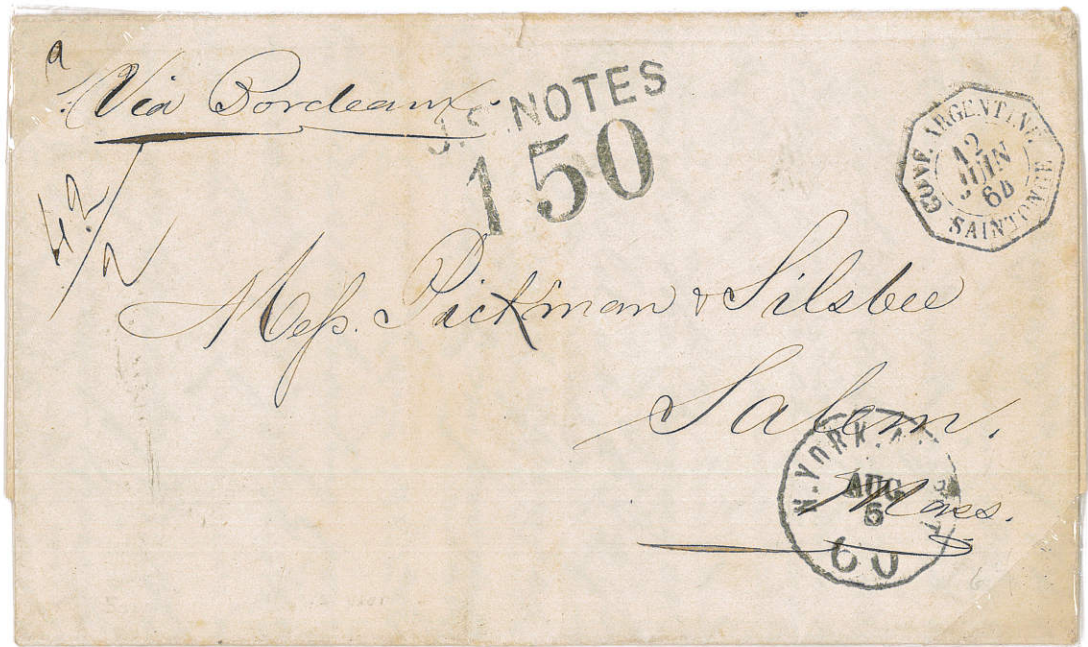 Via Bordeaux.
NOTES
150
CONF. ARGENTINE
12
JUIN
64
SAINTONGE
42/2
Mess. Pickman & Silsbee
Salem.
Mass.
N. YORK.
AUG
5
60